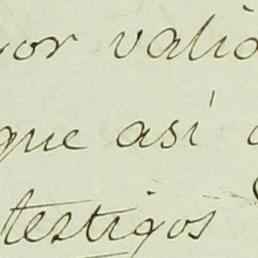 por valid
que así
testigos